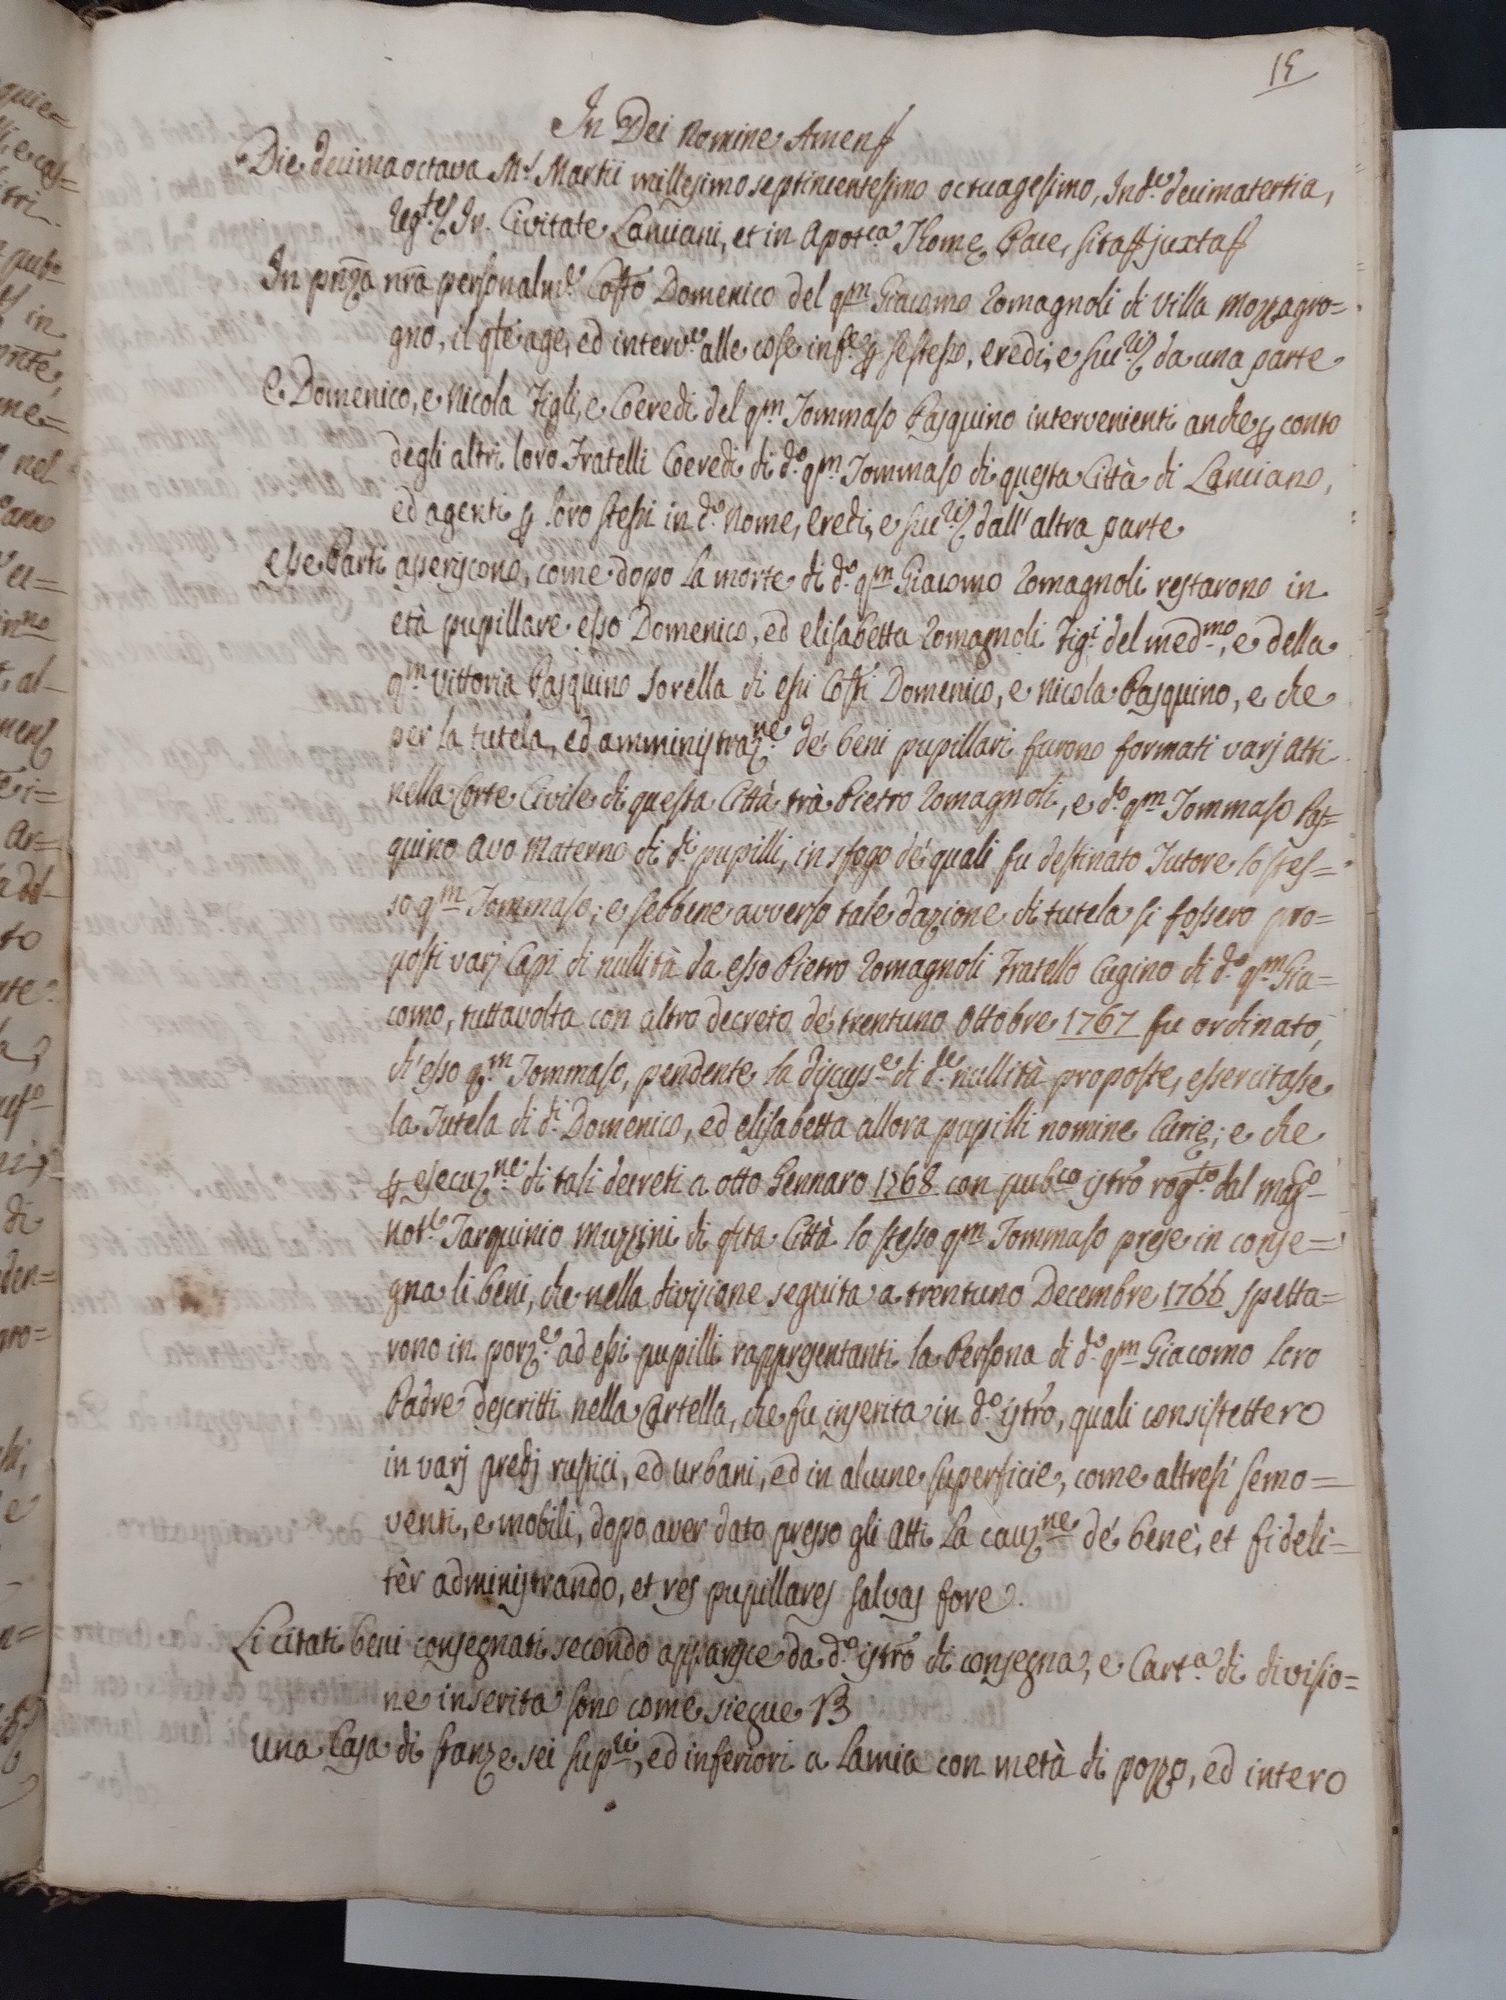 15
In Dei Nomine Amen
Die decimaoctava M.s Martii millesimo septincentesimo octuagesimo, Ind.e decimatertia,
Reg.tes In Civitate Lanciani, et in Apot.ca Thomę Pace, sita juxta
In pñza nr̃a personalm.e Cos̃to Domenico del qm̃ Giacomo Romagnoli di Villa Mozzagro=
gno, il qle age, ed interv.e alle cose inf.e p se stesso, eredi, e suc.ri da una parte
E Domenico, e Nicola Figli, e Coeredi del q.m Tommaso Pasquino intervenienti anche p conto
degli altri loro Fratelli Coeredi di d.o q.m Tommaso di questa Città di Lanciano,
ed agenti p loro stessi in d.o nome, eredi, e suc.ri dall' altra parte
Esse Parti aseriscono, come dopo la morte di d.o q.m Giacomo Romagnoli restarono in
età pupillare esso Domenico, ed Elisabetta Romagnoli Fig.i del med.mo, e della
q.m Vittoria Pasquino sorella di essi Cos̃ti Domenico, e Nicola Pasquino, e che
per la tutela, ed amministraz.ne de' beni pupillari furono formati varj atti
nella Corte Civile di questa Città trà Pietro Romagnoli, e d.o q.m Tommaso Pas=
quino Avo Materno di d.i pupilli, in sfogo de' quali fu destinato Tutore lo stes=
so q.m Tommaso; e sebbene avverso tale dazione di tutela si fossero pro=
posti varj Capi di nullità da esso Pietro Romagnoli Fratello Cugino di d.o q.m Gia=
como, tuttavolta con altro decreto de' trentuno Ottobre 1767 fu ordinato,
ch' esso q.m Tommaso, pendente la discuss.e di d.e nullità proposte, essercitasse
la Tutela di d.i Domenico, ed Elisabetta allora pupilli nomine Curię; e che
p esecuz.ne di tali decreti a otto Gennaro 1768 con pub.co istr̃o rog.to dal mag.o
not.o Tarquinio Muzzini di q̃sta Città lo stesso q.m Tommaso prese in conse=
gna li beni, che nella divisione seguita a trentuno Decembre 1766 spetta=
rono in porz.e ad essi pupilli rappresentanti la Persona di d.o q.m Giacomo loro
Padre descritti nella Cartella, che fu inserita in d.o istr̃o, quali consistettero
in varj predj rustici, ed urbani, ed in alcune superficie, come altresì semo=
venti, e mobili, dopo aver dato presso gli Atti la cauz.ne de bene, et fideli=
tèr administrando, et res pupillares salvas fore
Li citati beni consegnati secondo apparisce da d.o istr̃o di consegna, e Cart.a di divisio=
ne inserita sono come siegue
Una Casa di stanze sei sup.ri, ed inferiori a lamia con metà di pozzo, ed intero